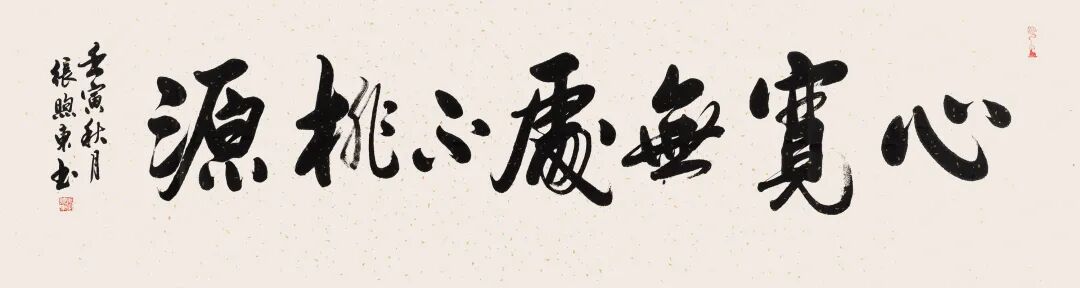 心寛無處不桃源
壬寅秋月
張煦東书